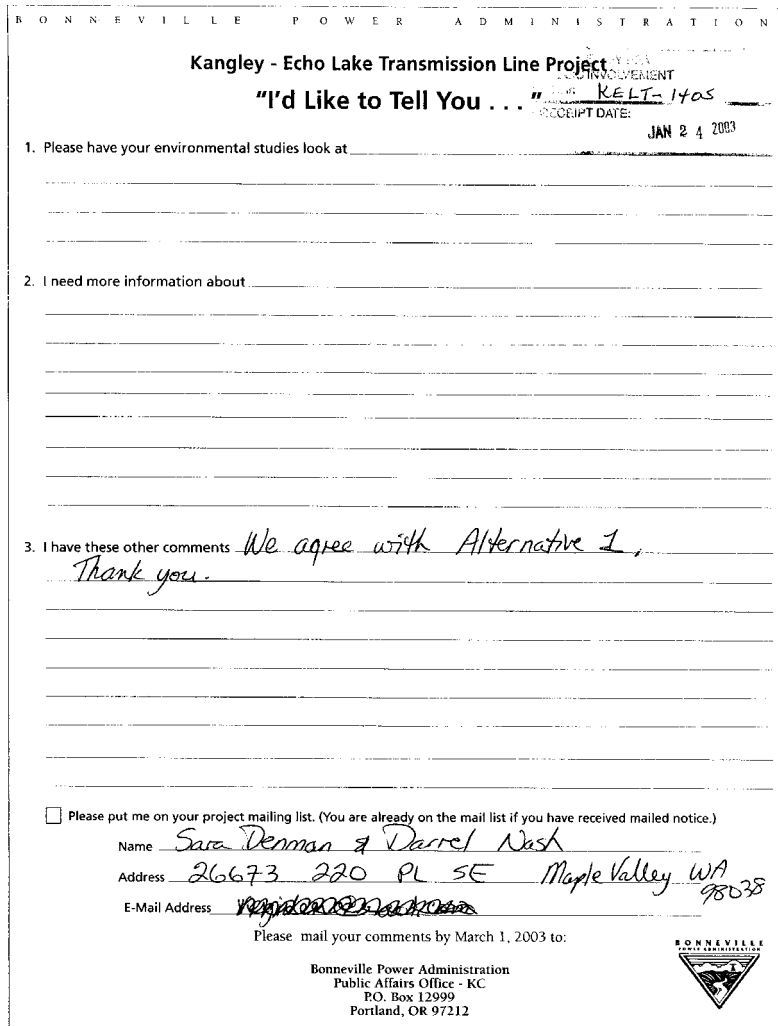 BONNEVILLE POWER ADMINISTRATION
Kangley - Echo Lake Transmission Line Project
INVOLVEMENT
"I'd Like to Tell You . . . "
KELT-1405
RECEIPT DATE:
JAN 24 2003
1. Please have your environmental studies look at
2. I need more information about
3. I have these other comments We agree with Alternative 1,
Thank you.
Please put me on your project mailing list. (You are already on the mail list if you have received mailed notice.)
Name Sara Denman & Darrel Nash
Address 26673 220 PL SE Maple Valley WA
98038
E-Mail Address
Please mail your comments by March 1, 2003 to:
Bonneville Power Administration
Public Affairs Office - KC
P.O. Box 12999
Portland, OR 97212
BONNEVILLE
POWER ADMINISTRATION